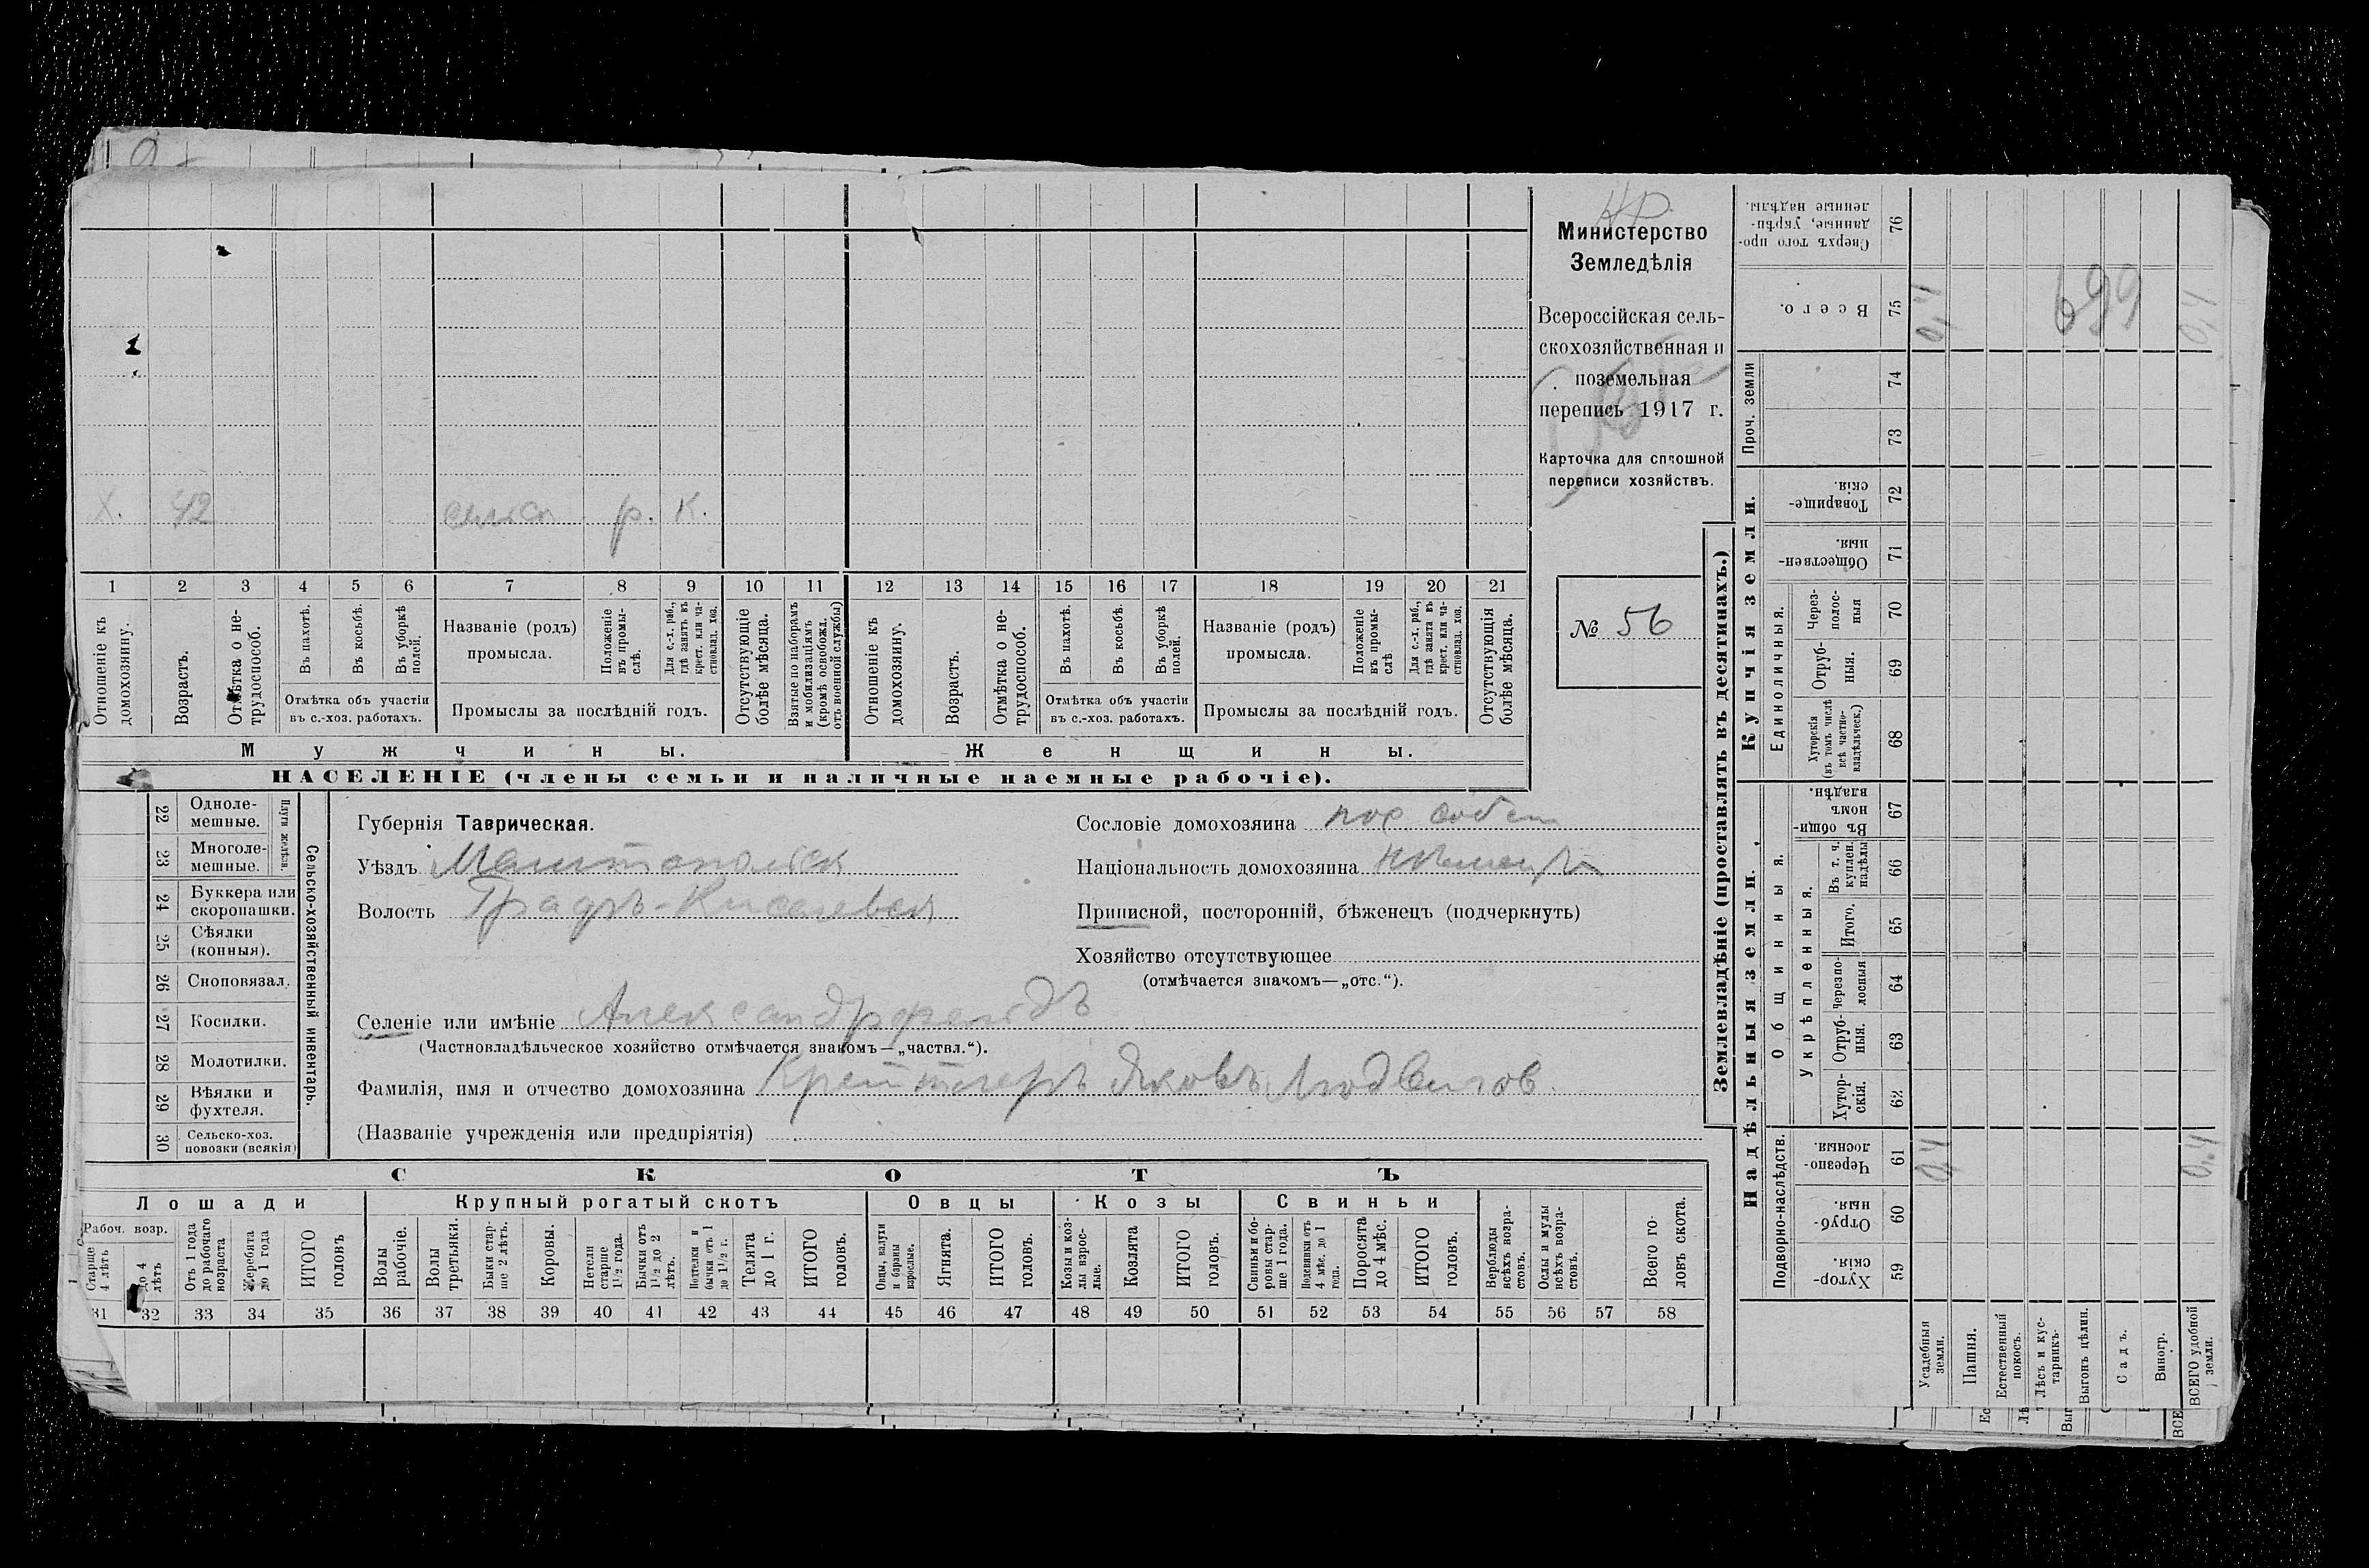 Х. 42 р. К.
1 2 3 4 5 6 7 8 9 10 11 12 13 14 15 16 17 18 19 20 21
Отношеніе къ домохозяину.
Возрастъ.
Отмѣтка о не-
трудоспособ.
Въ пахотѣ.
Въ косьбѣ.
Въ уборкѣ
полей.
Отмѣтка объ участіи
въ с.-хоз. работахъ.
Названіе (родъ)
промысла.
Положеніе
въ промы-
слѣ.
Для с.-х. раб.,
гдѣ занятъ въ
крест. или ча-
стновлад. хоз.
Промыслы за послѣдній годъ.
Отсутствующіе
болѣе мѣсяца.
Взятые по наборамъ
и мобилизаціямъ
(кромѣ освобожд.
отъ военной службы)
Отношеніе къ
домохозяину.
Возрастъ.
Отмѣтка о не-
трудоспособ.
Въ пахотѣ.
Въ косьбѣ.
Въ уборкѣ
полей.
Отмѣтка объ участіи
въ с.-хоз. работахъ.
Названіе (родъ)
промысла.
Положеніе
въ промы-
слѣ
Для с.-х. раб.,
гдѣ занята въ
крест. или ча-
стновлад. хоз.
Промыслы за послѣдній годъ.
Отсутствующія
болѣе мѣсяца.
Мужчины.
Женщины.
НАСЕЛЕНІЕ (члены семьи и наличные наемные рабочіе).
Кр.
Министерство
Земледѣлія
Всероссійская сель-
скохозяйственная и
поземельная
перепись 1917 г.
Карточка для сплошной
переписи хозяйствъ.
№ 56
22 Одноле-
мешные.
23 Многоле-
мешные.
Плуги желѣзн.
24 Буккера или
скоропашки.
25 Сѣялки
(конныя).
26 Сноповязал.
27 Косилки.
28 Молотилки.
29 Вѣялки и
фухтеля.
30 Сельско-хоз.
повозки (всякія)
Сельско-хозяйственный инвентарь.
Губернія Таврическая.
Уѣздъ Мелитопольск
Волость
Сословіе домохозяина пос собст
Національность домохозяина нѣмецъ
Приписной, посторонній, бѣженецъ (подчеркнуть)
Хозяйство отсутствующее
(отмѣчается знакомъ—„отс.“).
Селеніе или имѣніе Александрфельдъ
(Частновладѣльческое хозяйство отмѣчается знакомъ—„частвл.“).
Фамилія, имя и отчество домохозяина Яковъ Людвигов
(Названіе учрежденія или предпріятія)
СКОТЪ
Лошади
Крупный рогатый скотъ
Овцы
Козы
Свиньи
Рабоч. возр.
Старше
4 лѣтъ
до 4
лѣтъ
Отъ 1 года
до рабочаго
возраста
Жеребята
до 1 года
ИТОГО
головъ
Волы
рабочіе.
Волы
третьяки.
Быки стар-
ше 2 лѣтъ.
Коровы.
Нетели
старше
1½ года.
Бычки отъ
1½ до 2
лѣтъ.
Нетелки и
бычки отъ 1
до 1½ г.
Телята
до 1 г.
ИТОГО
головъ.
Овцы, валухи
и бараны
взрослые.
Ягнята.
ИТОГО
головъ.
Козы и коз-
лы взрос-
лые.
Козлята
ИТОГО
головъ.
Свиньи и бо-
ровы стар-
ше 1 года.
Подсвинки отъ
4 мѣс. до 1
года.
Поросята
до 4 мѣс.
ИТОГО
головъ.
Верблюды
всѣхъ возра-
стовъ.
Ослы и мулы
всѣхъ возра-
стовъ.
Всего го-
ловъ скота.
31 32 33 34 35 36 37 38 39 40 41 42 43 44 45 46 47 48 49 50 51 52 53 54 55 56 57 58
Землевладѣніе (проставлять въ десятинахъ.)
Купчія земли.
Сверхъ того про-
данные, укрѣп-
ленные надѣлы.
76
Всего.
75 0,4 699 0,4
Проч. земли
74
73
Товарище-
скія.
72
Обществен-
ныя.
71
Единоличныя.
Через-
полос-
ныя
70
Отруб-
ныя.
69
Хуторскія
(въ томъ числѣ
всѣ частно-
владѣльческ.)
68
Надѣльныя земли.
Общинныя.
Въ общи-
номъ
владѣн.
67
Укрѣпленныя.
Въ т. ч.
куплен.
надѣлы
66
Итого.
65
Черезпо-
лосныя
64
Отруб-
ныя.
63
Хутор-
скія.
62
Подворно-наслѣдств.
Черезпо-
лосныя.
61 0,4 0,4
Отруб-
ныя.
60
Хутор-
скія.
59
Усадебныя
земли.
Пашня.
Естественный
покосъ.
Лѣсъ и кус-
тарникъ.
Выгонъ цѣлин.
Садъ.
Виногр.
ВСЕГО удобной
земли.